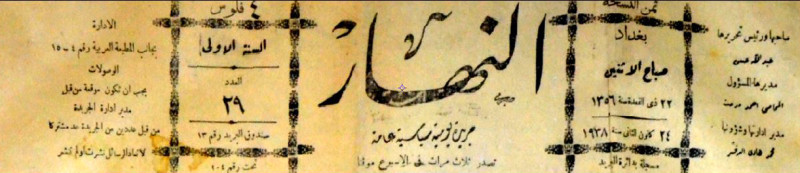 صاحبها ورئيس تحريرها
عبدالله حسن
مديرها المسؤول
المحامي احمد
مدير ادارتها وشؤونها
ثمن النسخة
بغداد
صباح الاثنين
٢٢ ذي القعدة سنة ١٣٥٦
٢٤ كانون الثاني سنة ١٩٣٨
مسجلة بدائرة البريد
النهار
جريدة يومية سياسية عامة
تصدر ثلاث مرات في الاسبوع موقتا
٤ فلوس
السنة الاولى
العدد
٢٩
صندوق البريد رقم ١٣
تحت رقم ١٠٤
الادارة
بجانب المطبعة العربية رقم ٤ - ١٥
الوصولات
يجب ان تكون موقعة من قبل
مدير ادارة الجريدة
من قبل عددين من الجريدة عد مشتركا
لا تعاد الرسائل نشرت او لم تنشر